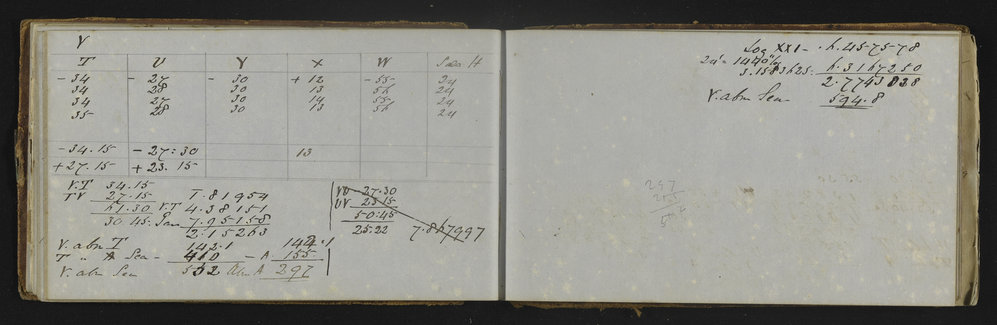 V
T U Y X W Sea H
- 34 - 27 - 30 + 12 - 55 24
34 28 30 13 56 24
34 27 30 14 55 24
35 28 30 13 56 24
- 34.15 - 27:30 13
+ 27.15 + 23.15
V.T 34.15
TV 27.15 1.81954
61.30 V.T 4.38151
30.45: 7.95158
2.15263
V. abv T 142.1 142.1
T " Sea - 410 - A 155.
V. abv Sea 552 Abv A 297
VU 27.30
UV 23.15
50.45
25.22 7.867997
Log XXI - . 6.45-75-78
24" = 1440"
3.1583625: 6.3167250
2.7743838
V. abv Sea 594.8
297